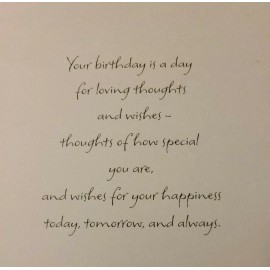 Your birthday is a day
for loving thoughts
and wishes –
thoughts of how special
you are,
and wishes for your happiness
today, tomorrow, and always.